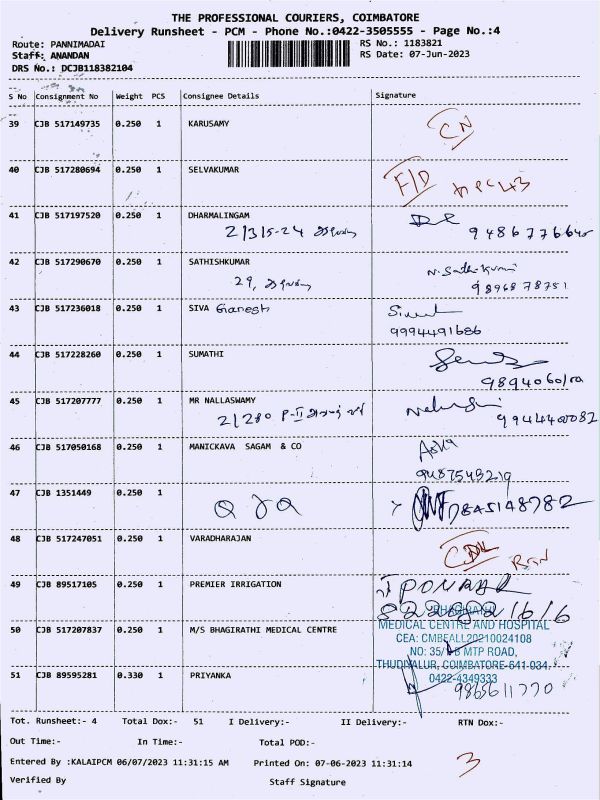 THE PROFESSIONAL COURIERS, COIMBATORE
Delivery Runsheet - PCM - Phone No.:0422-3505555 - Page No.:4
Route: PANNIMADAI RS No.: 1183821
Staff: ANANDAN RS Date: 07-Jun-2023
DRS No.: DCJB118382104
S No Consignment No Weight PCS Consignee Details Signature
39 CJB 517149735 0.250 1 KARUSAMY CN
40 CJB 517280694 0.250 1 SELVAKUMAR F/D
41 CJB 517197520 0.250 1 DHARMALINGAM
2/315-24
42 CJB 517290670 0.250 1 SATHISHKUMAR N. Sathishkumar
29, 9896878751
43 CJB 517236018 0.250 1 SIVA Ganesh
9994491686
44 CJB 517228260 0.250 1 SUMATHI
45 CJB 517207777 0.250 1 MR NALLASWAMY
2/280 P-II
46 CJB 517050168 0.250 1 MANICKAVA SAGAM & CO
9487545219
47 CJB 1351449 0.250 1
7845148782
48 CJB 517247051 0.250 1 VARADHARAJAN RTN
49 CJB 89517105 0.250 1 PREMIER IRRIGATION
BHAGIRATHI
50 CJB 517207837 0.250 1 M/S BHAGIRATHI MEDICAL CENTRE MEDICAL CENTRE AND HOSPITAL
CEA: CMBEALL20210024108
NO: 35/1-B MTP ROAD,
THUDIYALUR, COIMBATORE-641 034.
51 CJB 89595281 0.330 1 PRIYANKA 0422-4349333
9865611770
Tot. Runsheet:- 4 Total Dox:- 51 I Delivery:- II Delivery:- RTN Dox:-
Out Time:- In Time:- Total POD:-
Entered By :KALAIPCM 06/07/2023 11:31:15 AM Printed On: 07-06-2023 11:31:14
3
Verified By Staff Signature